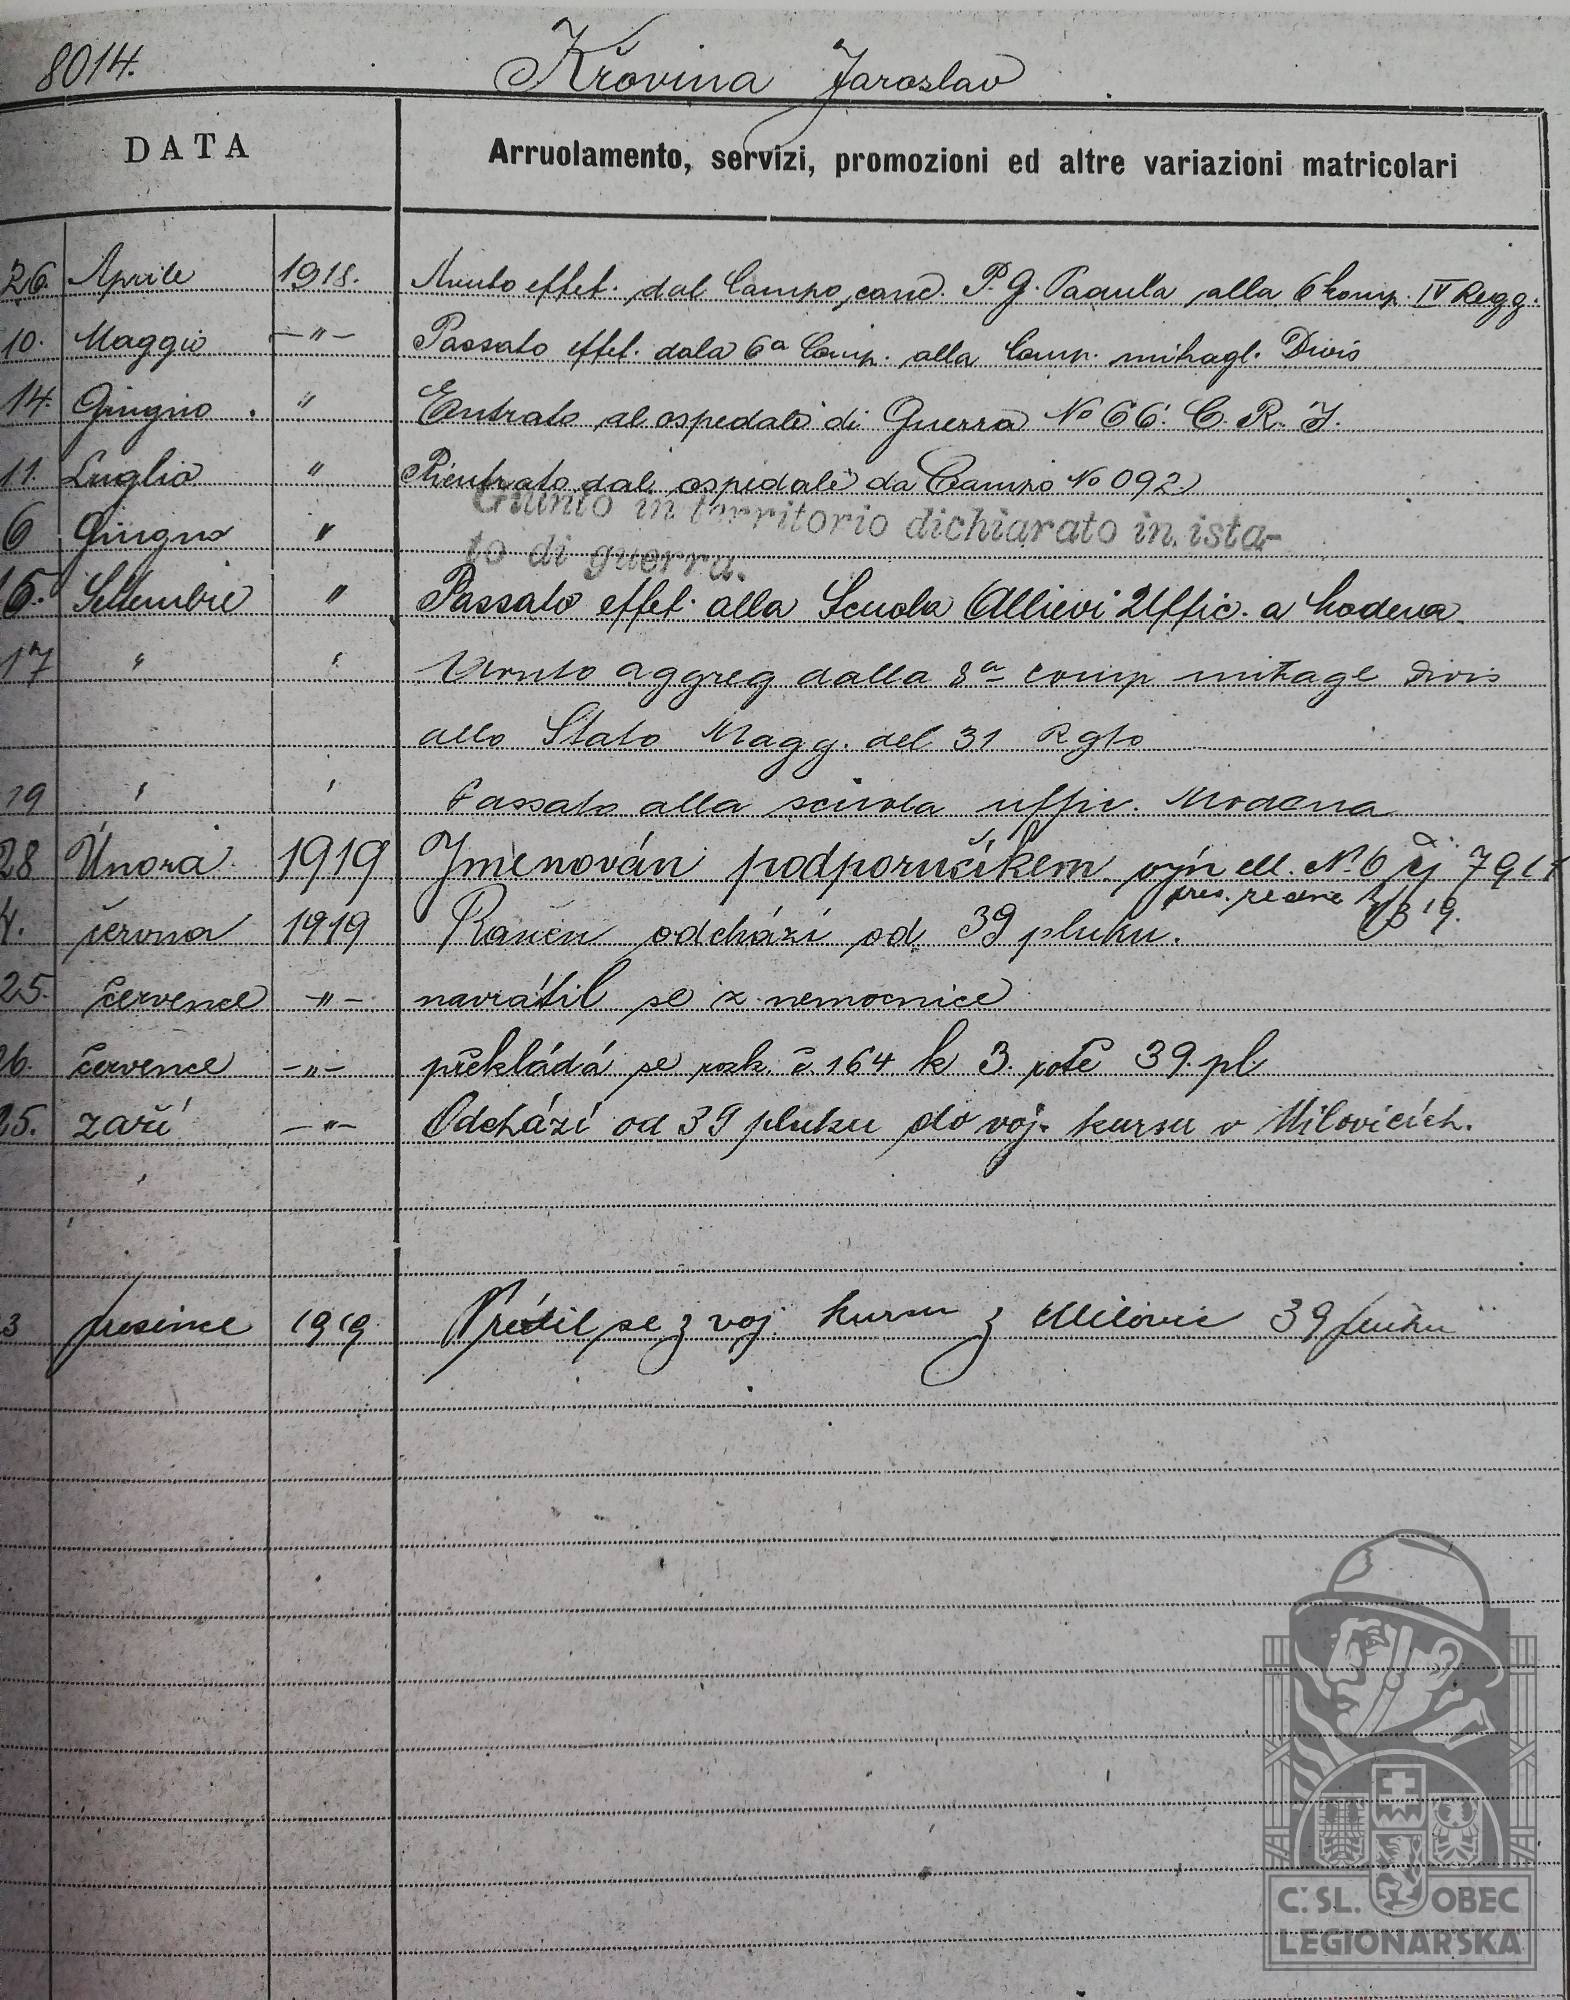 8014. Křovina Jaroslav
DATA Arruolamento, servizi, promozioni ed altre variazioni matricolari
26. Aprile 1918. effet. dal Campo conc. P. G. Padula alla 6 komp. IV Regg.
10. Maggio —"— Passato effet. dala 6a Comp. alla Comp. mitragl. Divis
14. Giugno . " Entrato al ospedale di Guerra No 66. C. R. I.
11. Luglio " Rientrato dal ospedale da Campo No 092
6 Giugno " Giunto in territorio dichiarato in ista-
to di guerra.
6. Settembre " Passato effet. alla Scuola Allievi Uffic. a Modena.
17 " " aggreg dalla 8a comp mitragl Divis
allo Stato Magg. del 31 Rgto
19 " " Passato alla scuola uffic. Modena
28 Února 1919 Jmenován podporučíkem výn M. N. O čj 7911
pres. 19.
4. června 1919 Raněn odchází od 39 pluku.
25. července —"— navrátil se z nemocnice
26. července —"— překládá se rozk. č. 164 k 3. rotě 39. pl
25. září —"— Odchází od 39 pluku do voj. kursu v Milovicích.
3 prosince 1919 Vrátil se z voj. kursu z Milovic 39 pluku
Č. SL. OBEC
LEGIONÁŘSKÁ